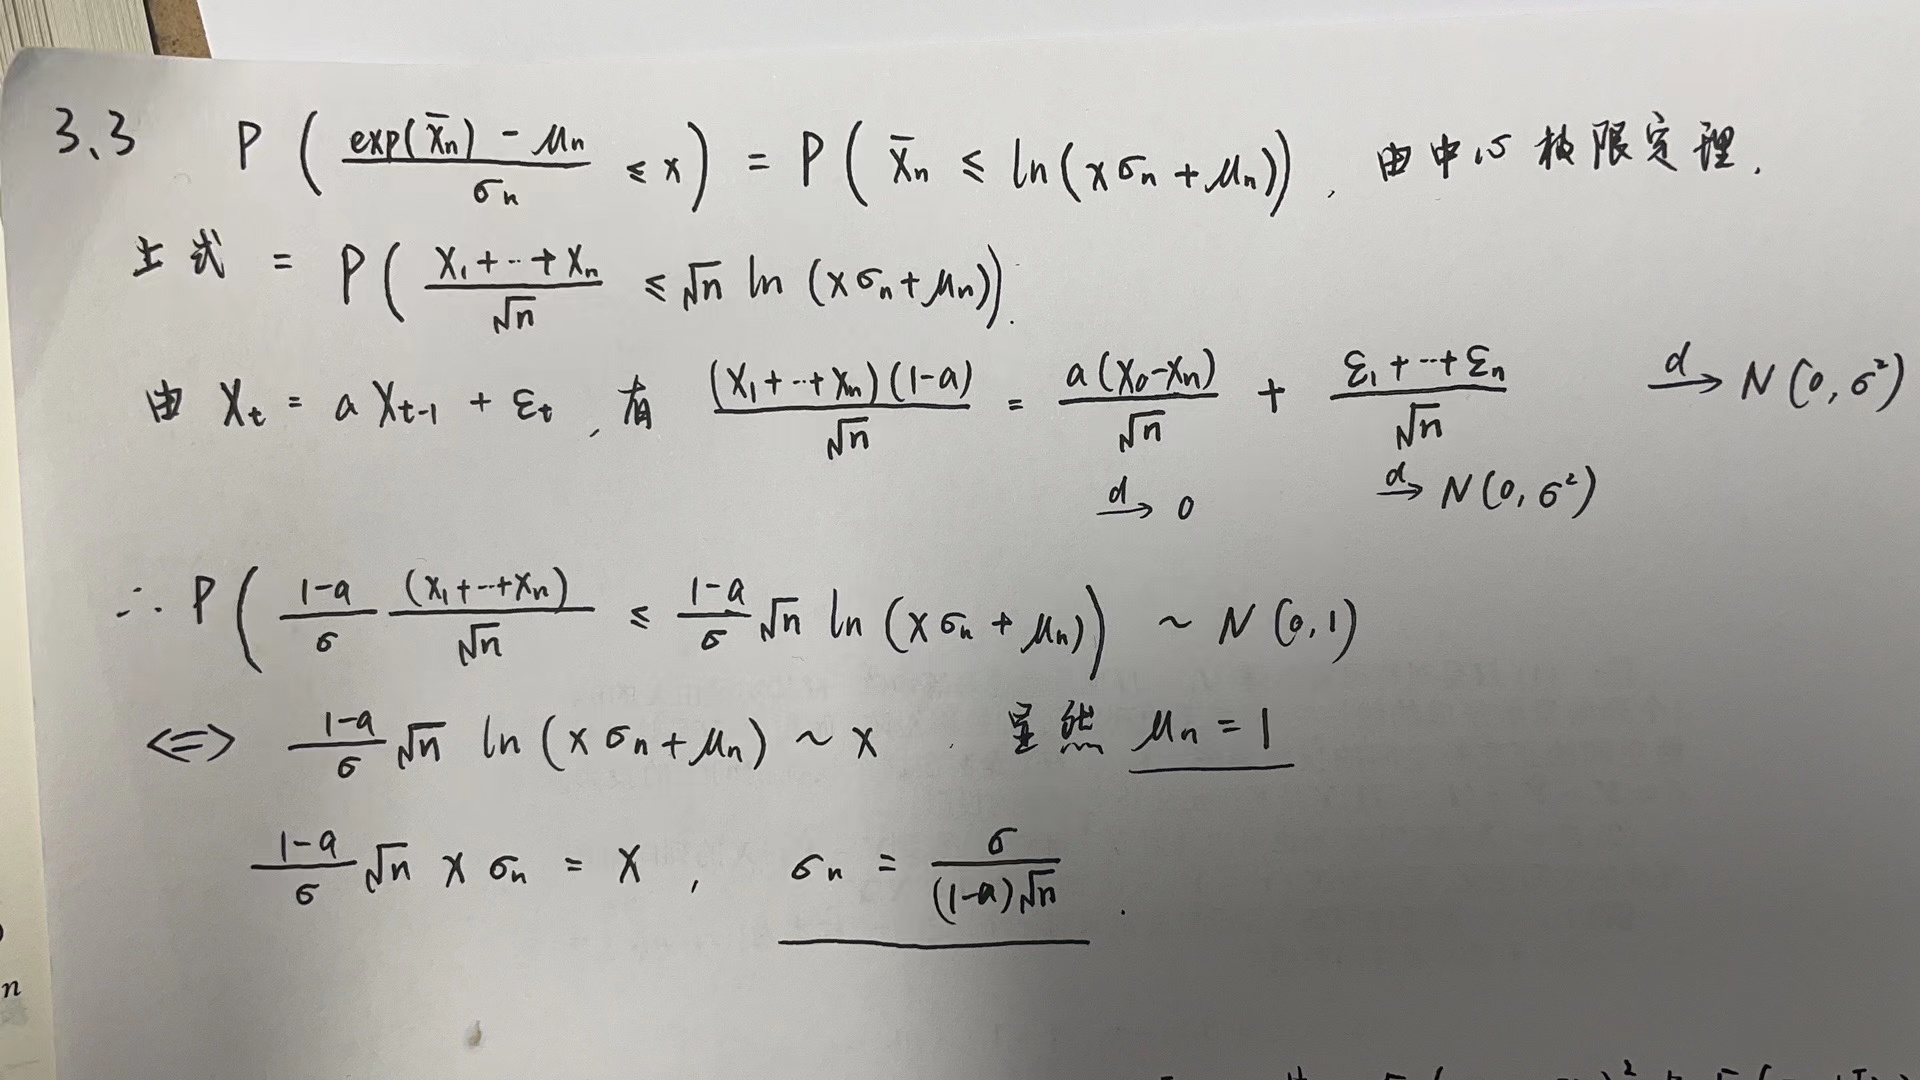 3.3 P( (exp(X̄n) - μn) / σn ≤ x ) = P( X̄n ≤ ln(xσn + μn) ), 由中心极限定理.
上式 = P( (X₁+···+Xn) / √n ≤ √n ln (xσn + μn) ).
由 Xt = a Xt-1 + εt, 有 (X₁+···+Xn)(1-a) / √n = a(X₀-Xn) / √n + (ε₁+···+εn) / √n →d N(0, σ²)
→d 0 →d N(0, σ²)
∴ P( (1-a)/σ (X₁+···+Xn)/√n ≤ (1-a)/σ √n ln (xσn + μn) ) ~ N(0,1)
<=> (1-a)/σ √n ln (xσn + μn) ~ x . 显然 μn = 1
(1-a)/σ √n x σn = x , σn = σ / ((1-a)√n) .
n